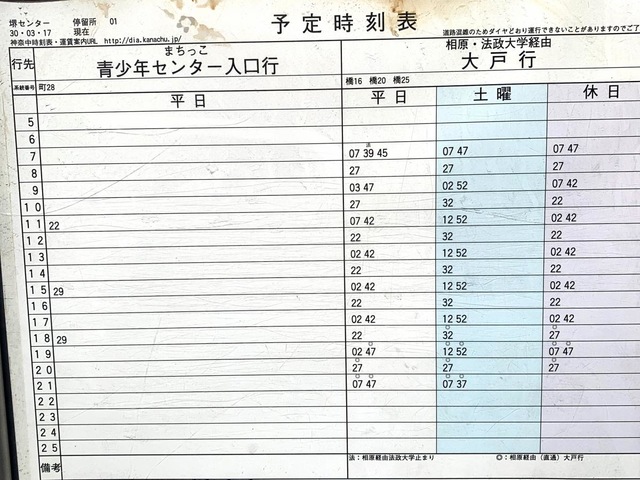 堺センター 停留所 01
30・03・17 現在
神奈中時刻表・運賃案内URL http://dia.kanachu.jp/
予定時刻表
道路混雑のためダイヤどおり運行できないことがありますのでご了
行先
まちっこ
青少年センター入口行
相原・法政大学経由
大戸行
系統番号 町28
橋16 橋20 橋25
平日 平日 土曜 休日
5
6
法
7 07 39 45 07 47 07 47
8 27 27 27
9 03 47 02 52 07 42
10 27 32 22
11 22 07 42 12 52 02 42
12 22 32 22
13 02 42 12 52 02 42
14 22 32 22
15 29 02 42 12 52 02 42
16 22 32 22
17 02 42 12 52 02 42
18 29 22 32 27
19 02 47 12 52 07 47
20 27 27 27
21 07 47 07 37
22
23
24
25
備考 法：相原経由法政大学止まり ◎：相原経由（直通）大戸行